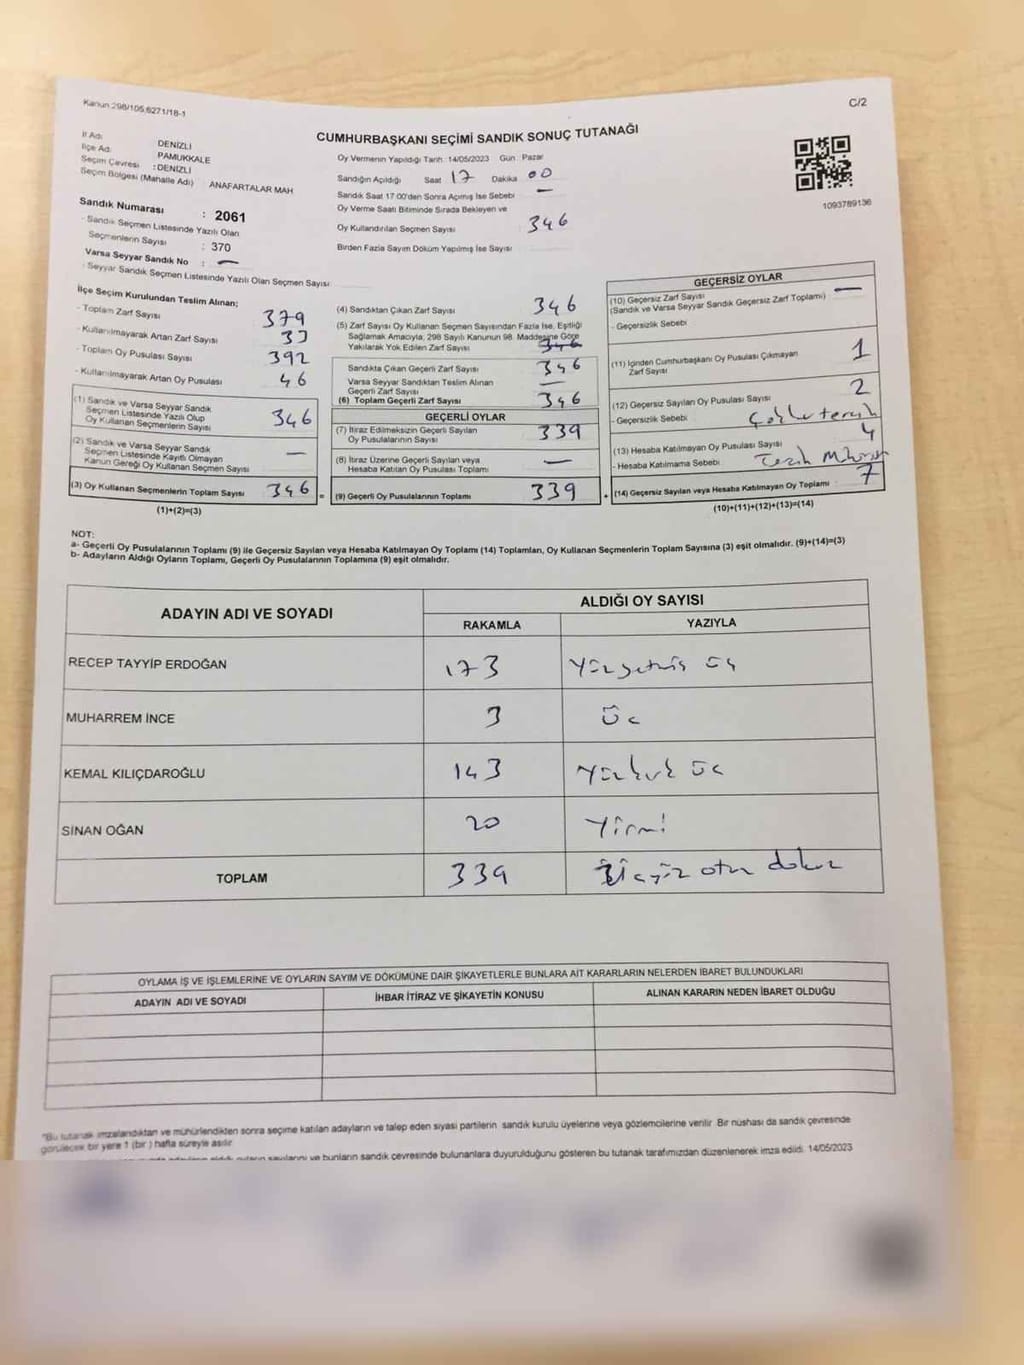 Kanun 298/105,6271/18-1
C/2
CUMHURBAŞKANI SEÇİMİ SANDIK SONUÇ TUTANAĞI
İl Adı DENİZLİ
İlçe Ad. PAMUKKALE
Seçim Çevresi : DENİZLİ
Seçim Bölgesi (Mahalle Adı) ANAFARTALAR MAH
Sandık Numarası : 2061
- Sandık Seçmen Listesinde Yazılı Olan
Seçmenlerin Sayısı : 370
Varsa Seyyar Sandık No : —
- Seyyar Sandık Seçmen Listesinde Yazılı Olan Seçmen Sayısı
Oy Vermenin Yapıldığı Tarih 14/05/2023 Gün : Pazar
Sandığın Açıldığı Saat 17 Dakika 00
Sandık Saat 17:00'den Sonra Açmış İse Sebebi —
Oy Verme Saati Bitiminde Sırada Bekleyen ve
Oy Kullandırılan Seçmen Sayısı : 346
Birden Fazla Sayım Döküm Yapılmış İse Sayısı
1093789136
İlçe Seçim Kurulundan Teslim Alınan;
- Toplam Zarf Sayısı 379
- Kullanılmayarak Artan Zarf Sayısı 33
- Toplam Oy Pusulası Sayısı 392
- Kullanılmayarak Artan Oy Pusulası 46
(1) Sandık ve Varsa Seyyar Sandık
Seçmen Listesinde Yazılı Olup
Oy Kullanan Seçmenlerin Sayısı 346
(2) Sandık ve Varsa Seyyar Sandık
Seçmen Listesinde Kayıtlı Olmayan
Kanun Gereği Oy Kullanan Seçmen Sayısı —
(3) Oy Kullanan Seçmenlerin Toplam Sayısı 346
(1)+(2)=(3)
(4) Sandıktan Çıkan Zarf Sayısı 346
(5) Zarf Sayısı Oy Kullanan Seçmen Sayısından Fazla İse, Eşitliği
Sağlamak Amacıyla, 298 Sayılı Kanunun 98. Maddesine Göre
Yakılarak Yok Edilen Zarf Sayısı 346
Sandıkta Çıkan Geçerli Zarf Sayısı 346
Varsa Seyyar Sandıktan Teslim Alınan
Geçerli Zarf Sayısı —
(6) Toplam Geçerli Zarf Sayısı 346
GEÇERLİ OYLAR
(7) İtiraz Edilmeksizin Geçerli Sayılan
Oy Pusulalarının Sayısı 339
(8) İtiraz Üzerine Geçerli Sayılan veya
Hesaba Katılan Oy Pusulası Toplamı —
= (9) Geçerli Oy Pusulalarının Toplamı 339
GEÇERSİZ OYLAR
(10) Geçersiz Zarf Sayısı —
(Sandık ve Varsa Seyyar Sandık Geçersiz Zarf Toplamı)
- Geçersizlik Sebebi
(11) İçinden Cumhurbaşkanı Oy Pusulası Çıkmayan
Zarf Sayısı 1
(12) Geçersiz Sayılan Oy Pusulası Sayısı 2
- Geçersizlik Sebebi :
(13) Hesaba Katılmayan Oy Pusulası Sayısı 4
- Hesaba Katılmama Sebebi
+ (14) Geçersiz Sayılan veya Hesaba Katılmayan Oy Toplamı : 7
(10)+(11)+(12)+(13)=(14)
NOT:
a- Geçerli Oy Pusulalarının Toplamı (9) ile Geçersiz Sayılan veya Hesaba Katılmayan Oy Toplamı (14) Toplamları, Oy Kullanan Seçmenlerin Toplam Sayısına (3) eşit olmalıdır. (9)+(14)=(3)
b- Adayların Aldığı Oyların Toplamı, Geçerli Oy Pusulalarının Toplamına (9) eşit olmalıdır.
ADAYIN ADI VE SOYADI ALDIĞI OY SAYISI
RAKAMLA YAZIYLA
RECEP TAYYİP ERDOĞAN 173 Yüzyetmiş üç
MUHARREM İNCE 3 üç
KEMAL KILIÇDAROĞLU 143 Yüzkırk üç
SİNAN OĞAN 20 Yirmi
TOPLAM 339 üçyüz otuz dokuz
OYLAMA İŞ VE İŞLEMLERİNE VE OYLARIN SAYIM VE DÖKÜMÜNE DAİR ŞİKAYETLERLE BUNLARA AİT KARARLARIN NELERDEN İBARET BULUNDUKLARI
ADAYIN ADI VE SOYADI İHBAR İTİRAZ VE ŞİKAYETİN KONUSU ALINAN KARARIN NEDEN İBARET OLDUĞU
"Bu tutanak imzalandıktan ve mühürlendikten sonra seçime katılan adayların ve talep eden siyasi partilerin sandık kurulu üyelerine veya gözlemcilerine verilir. Bir nüshası da sandık çevresinde
görülecek bir yere 1 (bir ) hafta süreyle asılır.
ve bunların sandık çevresinde bulunanlara duyurulduğunu gösteren bu tutanak tarafımızdan düzenlenerek imza edildi. 14/05/2023